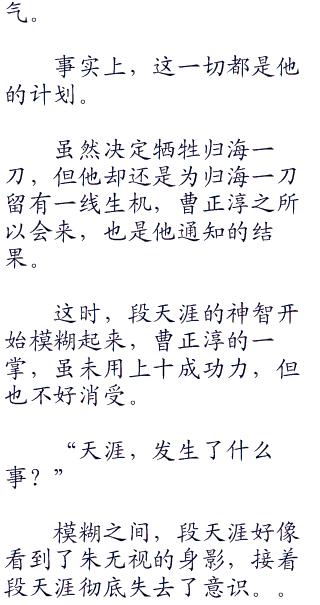 气。
事实上，这一切都是他
的计划。
虽然决定牺牲归海一
刀，但他却还是为归海一刀
留有一线生机，曹正淳之所
以会来，也是他通知的结
果。
这时，段天涯的神智开
始模糊起来，曹正淳的一
掌，虽未用上十成功力，但
也不好消受。
“天涯，发生了什么
事？”
模糊之间，段天涯好像
看到了朱无视的身影，接着
段天涯彻底失去了意识。。